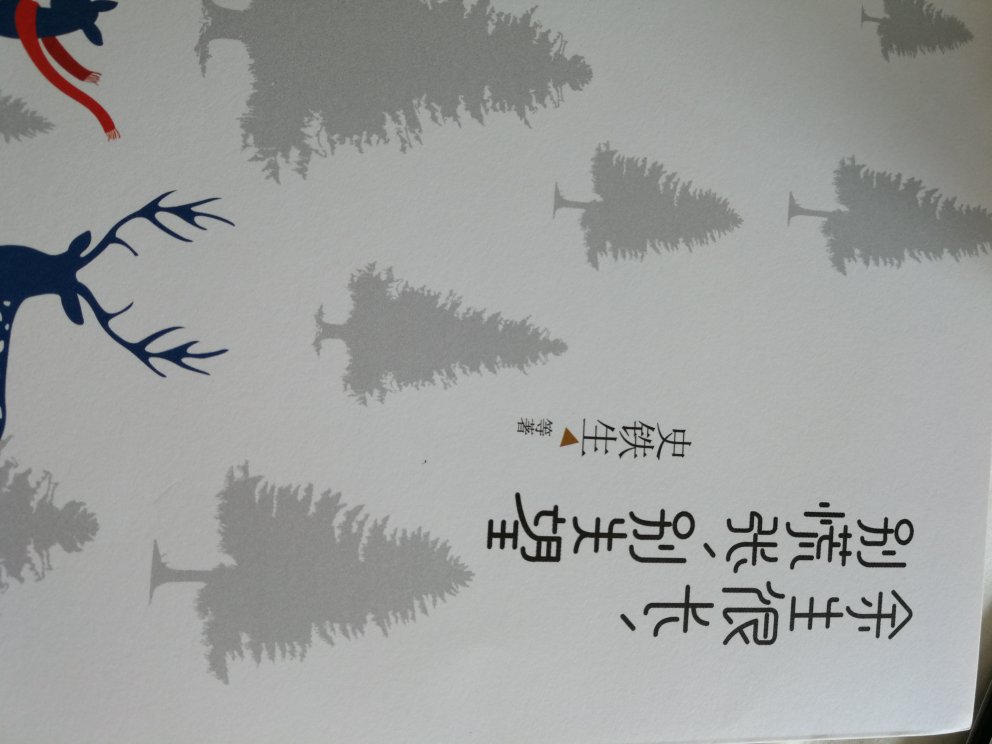 余生很长、
别慌张、别失望
史铁生 等著